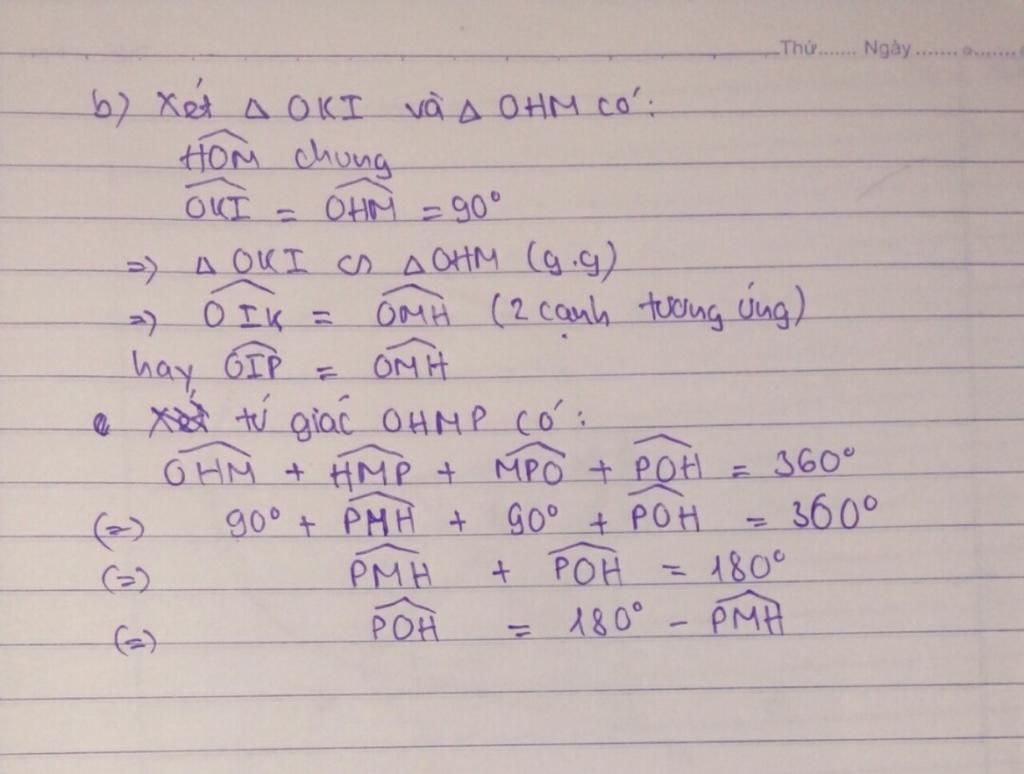 Thứ....... Ngày ....... o.......
b) Xét Δ OKI và Δ OHM có:
HOM chung
OKI = OHM = 90°
=> Δ OKI ∽ Δ OHM (g.g)
=> OIK = OMH (2 cạnh tương ứng)
hay OIP = OMH
Xét tứ giác OHMP có:
OHM + HMP + MPO + POH = 360°
(=) 90° + PMH + 90° + POH = 360°
(=) PMH + POH = 180°
(=) POH = 180° - PMH